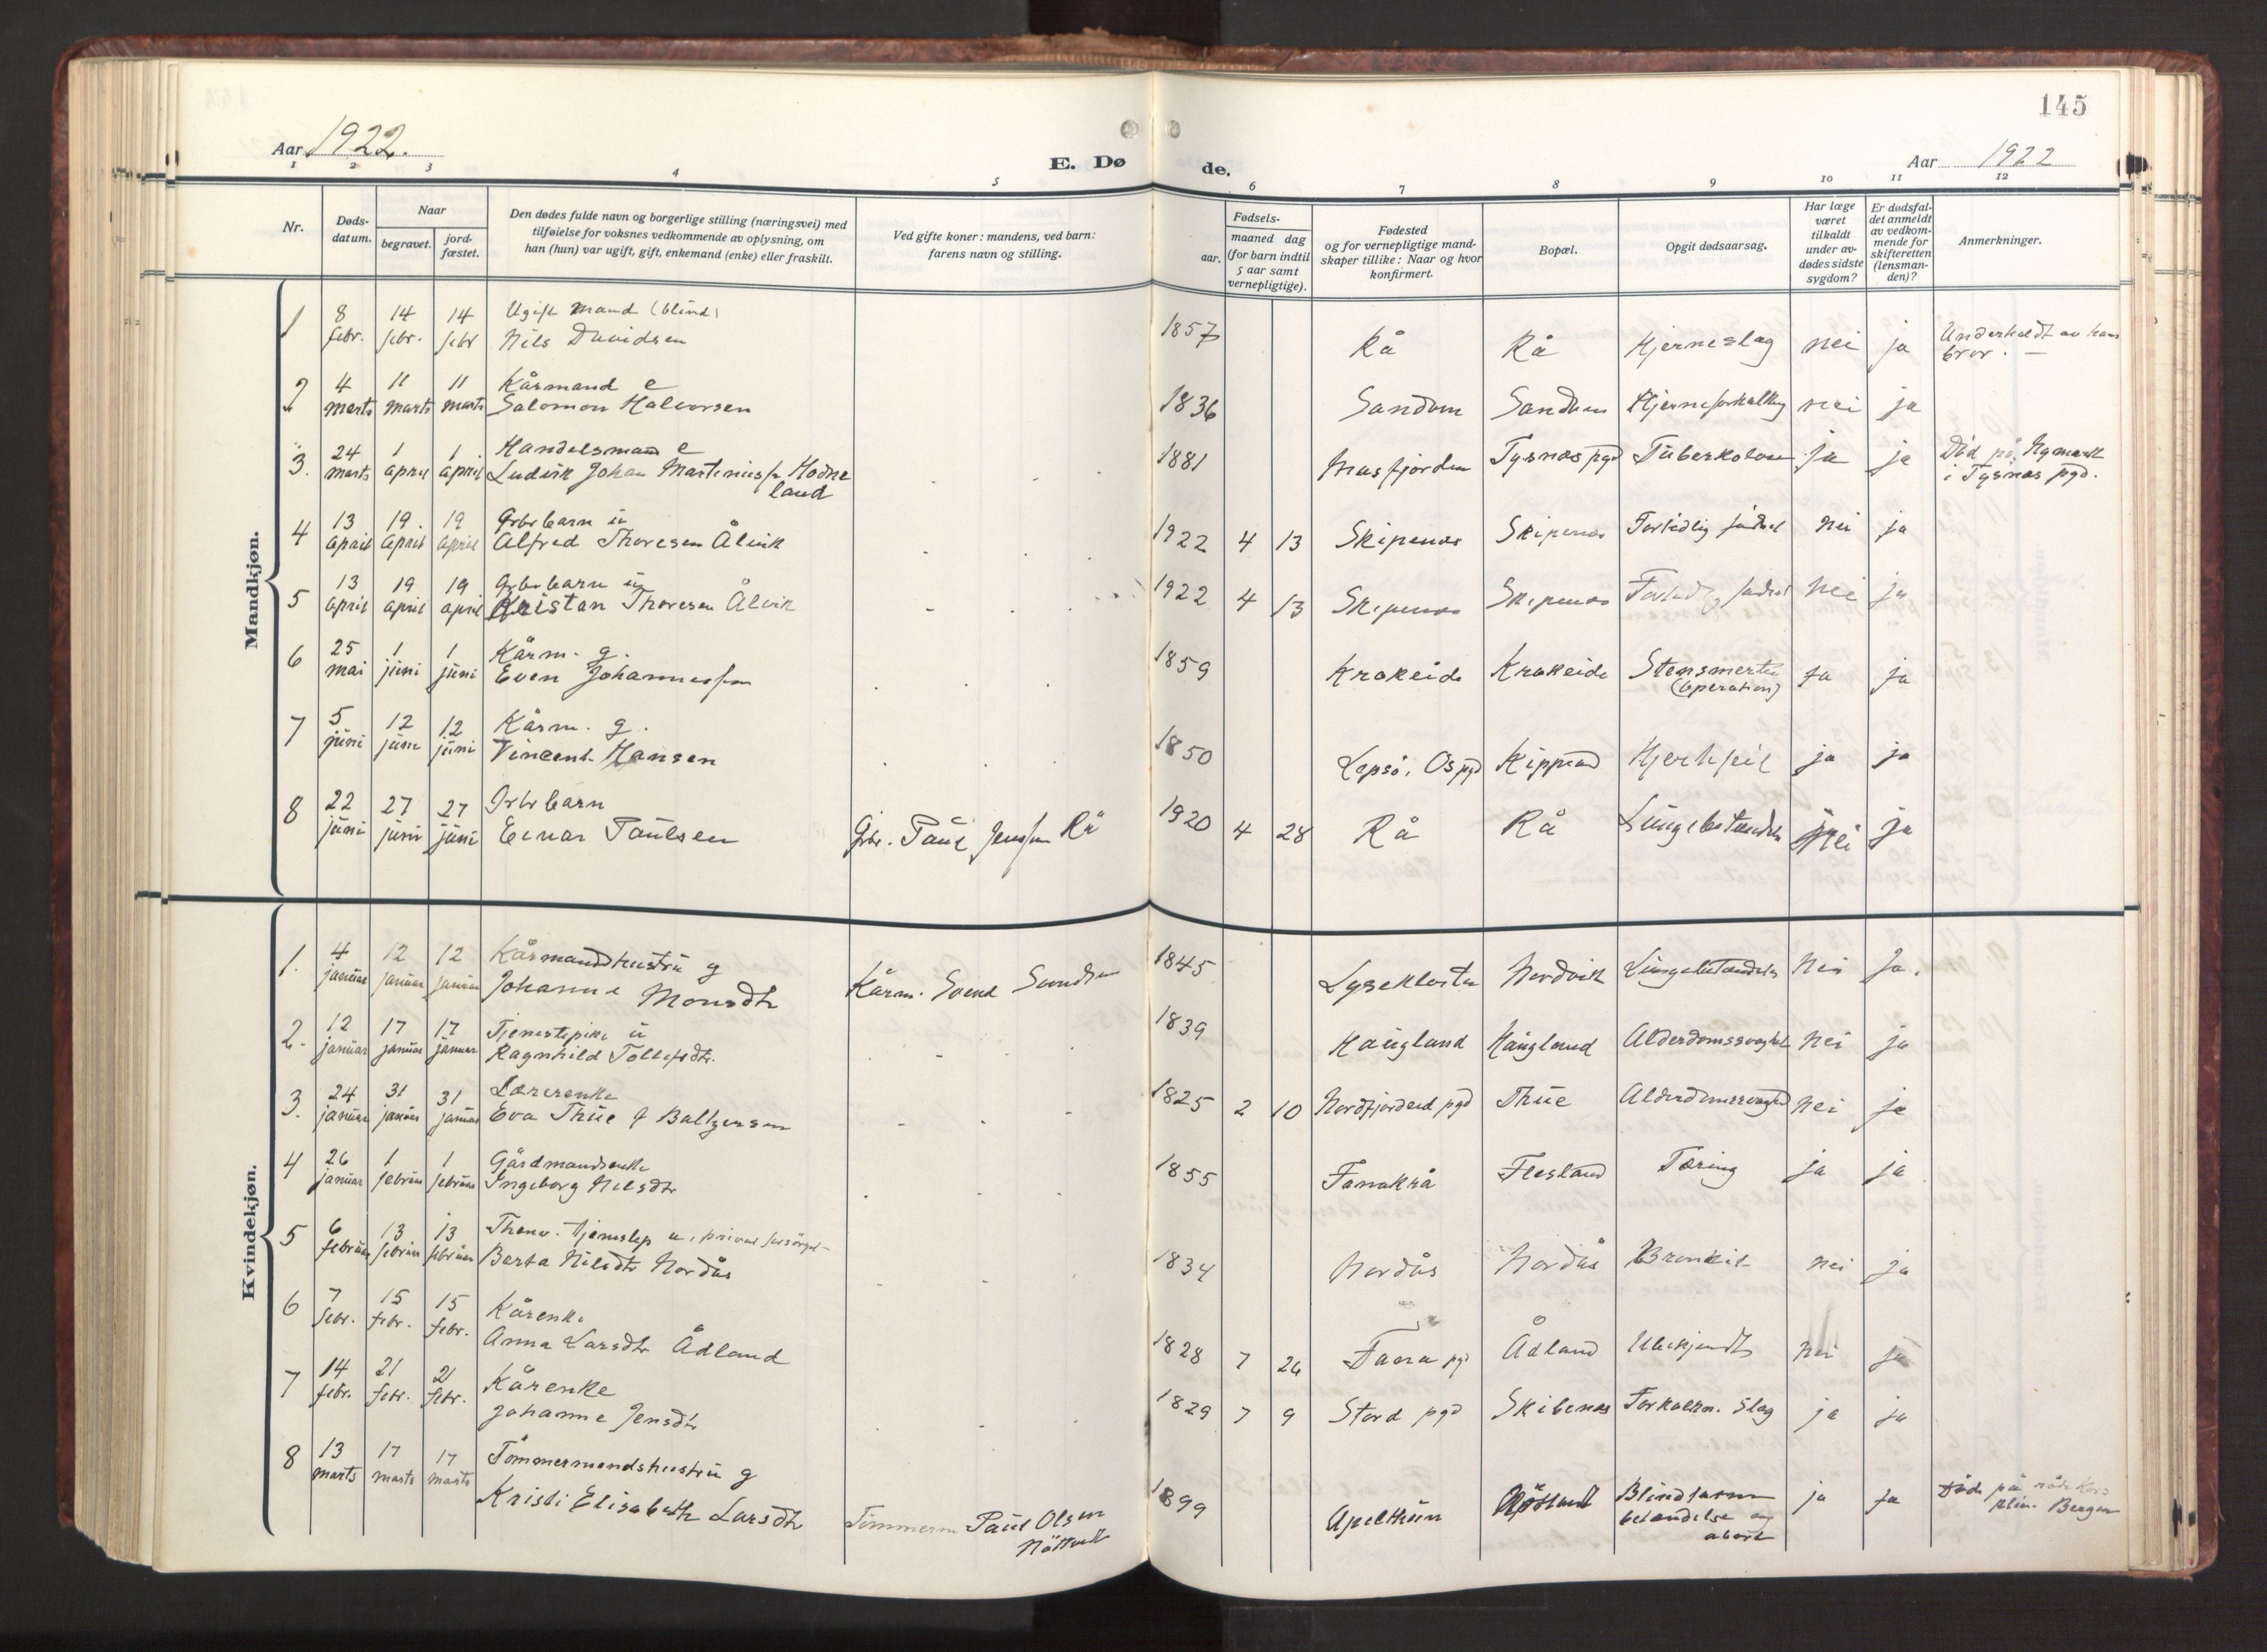 145
Aar 1922.
E. Dø de.
Aar 1922
1 2 3 4 5 6 7 8 9 10 11 12
Nr.
Døds-
datum.
Naar
begravet.
jord-
fæstet.
Den dødes fulde navn og borgerlige stilling (næringsvei) med
tilføielse for voksnes vedkommende av oplysning, om
han (hun) var ugift, gift, enkemand (enke) eller fraskilt.
Ved gifte koner: mandens, ved barn:
farens navn og stilling.
Fødsels-
aar.
maaned dag
(for barn indtil
5 aar samt
vernepligtige).
Fødested
og for vernepligtige mand-
skaper tillike: Naar og hvor
konfirmert.
Bopæl.
Opgit dødsaarsag.
Har læge
været
tilkaldt
under av-
dødes sidste
sygdom?
Er dødsfal-
det anmeldt
av vedkom-
mende for
skifteretten
(lensman-
den)?
Anmerkninger.
Mandkjøn.
1 8 14 14 Ugift mand (blind)
febr. febr. febr Nils Davidsen 1857 Rå Rå Hjerneslag nei ja Underholdt av hans
bror. —
2 4 11 11 Kårmand e
marts marts marts Salomon Halvorsen 1836 Sandven Sandven Hjerneforkalkng nei ja
3. 24 1 1 Handelsmand e
marts april april Ludvik Johan Martiniussen Hodne
land 1881 Masfjorden Tysnæs pgd Tuberkolose ja ja Död på Nymark
i Tysnæs pgd.
4 13 19. 19 Grbr barn u
april april april Alfred Thoresen Ålvik 1922 4 13 Skipenæs Skipenæs Fortidlig födsel nei ja
5 13 19 19 Grbr barn u
april april april Kristan Thoresen Ålvik 1922 4 13 Skipenæs Skipenæs Fortidlig födsel nei ja
6 25 1 1 Kårm. g.
mai juni juni Even Johannessen 1859 Krokeide Krokeide Stensmerter
(operation) ja ja
7 5 12 12 Kårm. g.
juni juni juni Vincent Hansen 1850 Lepsö, Os pgd Kipped Hjertefeil ja ja
8 22 27 27 Grbr barn
juni juni juni Einar Paulsen Grbr. Paul Jenssen Rå 1920 4 28 Rå Rå Lungebetændelse nei ja
Kvindekjøn.
1. 4 12 12 Kårmandshustru g
januar januar januar Johanne Monsdtr Kårm. Svend Svendsen 1845 Lysekloster Nordvik Lungebetændelse nei ja.
2. 12 17 17 Tjenestepike u
januar januar januar Ragnhild Tollefsdtr. 1839 Haugland Haugland Alderdomssvaghet nei ja
3. 24 31 31 Lærerenke
januar januar januar Eva Thue f Baltzersen 1825 2 10 Nordfjordeid pgd Thue Alderdomssvaghed nei ja
4 26 1 1 Gårdmandsenke
januar februar februar Ingeborg Nilsdtr 1855 Fanakrå Flesland Tæring ja ja
5 6 13 13 Thenv. tjenestep u, privat forsörget
februar februar februar Berta Nilsdtr Nordås 1834 Nordås Nordås Bronkit nei ja
6 7 15 15 Kårenke
febr. febr. febr. Anna Larsdtr Ådland 1828 7 26 Fana pgd Ådland Ubekjendt nei ja
7 14 21 21 Kårenke
febr. febr. febr. Johanne Jensdtr 1829 7 9 Stord pgd Skibenæs Forkalkn. Slag ja ja
8 13 17 17 Tömmermandshustru g
marts marts marts Kristi Elisabeth Larsdtr Tömmerm Paul Olsen
Nöttveit 1899 Apelthun Nöttveit Blindtarm
betændelse og
abort ja ja Död på röde kors
klin. Bergen